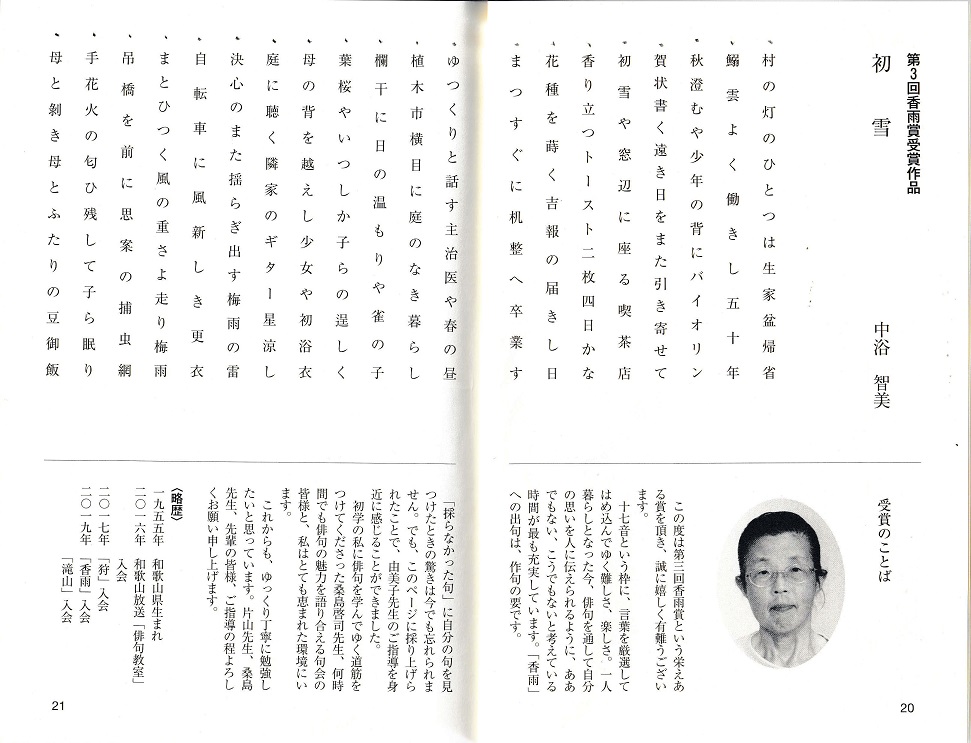 第3回香雨賞受賞作品
初雪
中浴 智美
村の灯のひとつは生家盆帰省
鰯雲よく働きし五十年
秋澄むや少年の背にバイオリン
賀状書く遠き日をまた引き寄せて
初雪や窓辺に座る喫茶店
香り立つトースト二枚四日かな
花種を蒔く吉報の届きし日
まつすぐに机整へ卒業す
受賞のことば
この度は第三回香雨賞という栄えあ
る賞を頂き、誠に嬉しく有難うござい
ます。
十七音という枠に、言葉を厳選して
はめ込んでゆく難しさ、楽しさ。一人
暮らしとなった今、俳句を通して自分
の思いを人に伝えられるように、ああ
でもない、こうでもないと考えている
時間が最も充実しています。「香雨」
への出句は、作句の要です。
20
ゆつくりと話す主治医や春の昼
植木市横目に庭のなき暮らし
欄干に日の温もりや雀の子
葉桜やいつしか子らの逞しく
母の背を越えし少女や初浴衣
庭に聴く隣家のギター星涼し
決心のまた揺らぎ出す梅雨の雷
自転車に風新しき更衣
まとひつく風の重さよ走り梅雨
吊橋を前に思案の捕虫網
手花火の匂ひ残して子ら眠り
母と剝き母とふたりの豆御飯
「採らなかった句」に自分の句を見
つけたときの驚きは今でも忘れられま
せん。でも、このページに採り上げら
れたことで、由美子先生のご指導を身
近に感じることができました。
初学の私に俳句を学んでゆく道筋を
つけてくださった桑島啓司先生、何時
間でも俳句の魅力を語り合える句会の
皆様と、私はとても恵まれた環境にい
ます。
これからも、ゆっくり丁寧に勉強し
たいと思っています。片山先生、桑島
先生、先輩の皆様、ご指導の程よろし
くお願い申し上げます。
〈略歴〉
一九五五年 和歌山県生まれ
二〇一六年 和歌山放送「俳句教室」
入会
二〇一七年 「狩」入会
二〇一九年 「香雨」入会
「滝山」入会
21